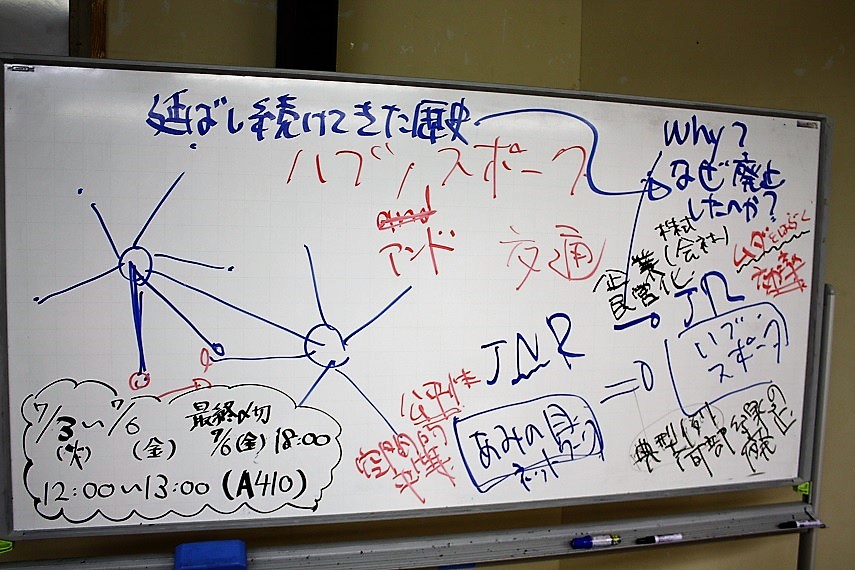 延ばし続けてきた歴史
Why?
なぜ廃止
したのか?
ハブ/スポーク
and
アンド
交通
株式
(会社)
企業
民営化
ムダをはぶく
JNR
JR
公平性
空間的
平等
あみの目
ネット
ハブ
スポーク
典型例
南部線の
廃止
7/3~7/6
(火) (金)
最終〆切
7/6(金) 18:00
12:00~13:00 (A410)